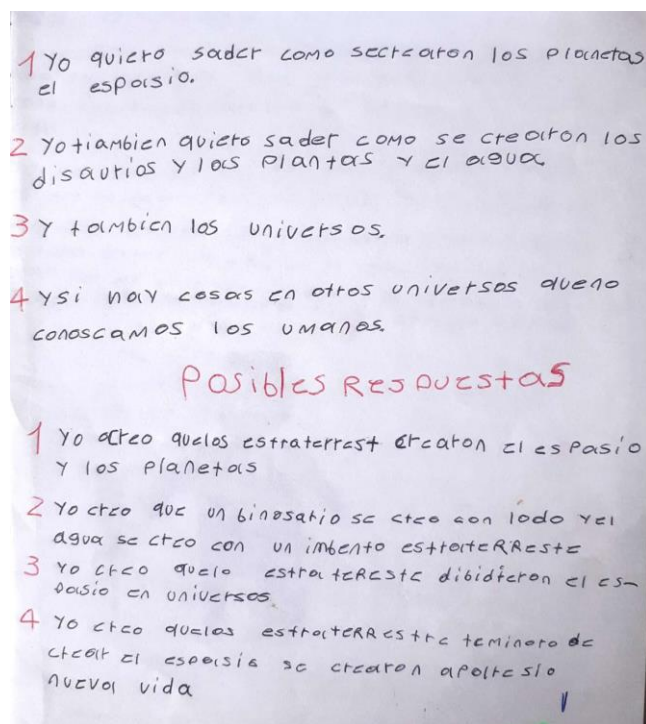 1 Yo quiero sader como secrearon los planetas
el espasio.
2 Yo tiambien quiero sader como se crearon los
disaurios y las plantas y el agua
3 Y tambien los universos.
4 Y si hay cosas en otros universos queno
conoscamos los umanos.
Posibles Respuestas
1 Yo acreo quelos estraterrest crearon el espasio
y los planetas
2 Yo creo que un binosario se creo con lodo yel
agua se creo con un imbento estraiteRReste
3 Yo creo quelo estraiteReste dibidieron el es-
pasio en universos
4 Yo creo quelos estraiteRRestre teminaro de
crear el espasio se crearon aparesio
nueva vida